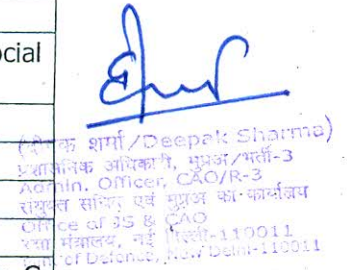 ocial
(दीपक शर्मा/Deepak Sharma)
प्रशासनिक अधिकारी, मुप्रअ/भर्ती-3
Admin. Officer, CAO/R-3
संयुक्त सचिव एवं मुप्रअ का कार्यालय
Office of JS & CAO
रक्षा मंत्रालय, नई दिल्ली-110011
of Defence, New Delhi-110011